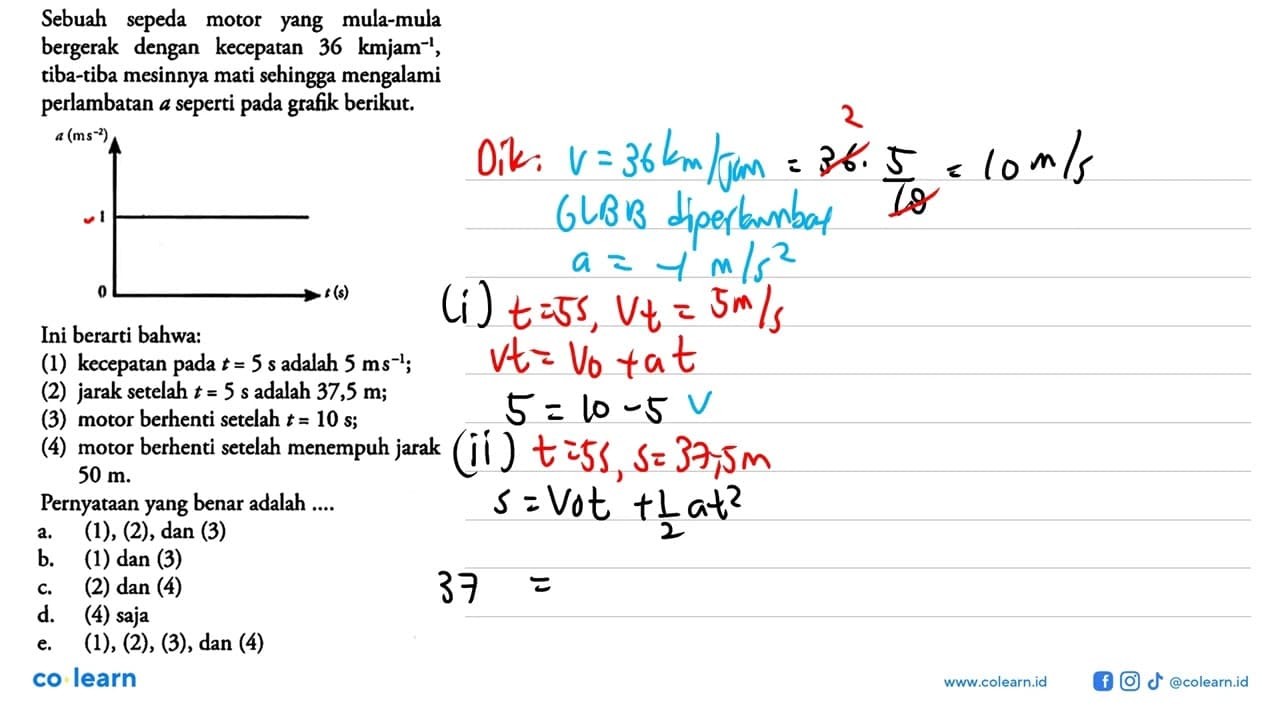 Sebuah sepeda motor yang mula-mula
bergerak dengan kecepatan 36 kmjam⁻¹,
tiba-tiba mesinnya mati sehingga mengalami
perlambatan a seperti pada grafik berikut.
a (ms⁻²)
-1
0
t (s)
Ini berarti bahwa:
(1) kecepatan pada t = 5 s adalah 5 ms⁻¹;
(2) jarak setelah t = 5 s adalah 37,5 m;
(3) motor berhenti setelah t = 10 s;
(4) motor berhenti setelah menempuh jarak
50 m.
Pernyataan yang benar adalah ....
a. (1), (2), dan (3)
b. (1) dan (3)
c. (2) dan (4)
d. (4) saja
e. (1), (2), (3), dan (4)
2
Dik: v = 36 km/jam = 36 . 5/18 = 10 m/s
GLBB diperlambat
a = -1 m/s²
(i) t=5s, Vt = 5m/s
Vt = Vo + at
5 = 10 - 5 v
(ii) t=5s, s= 37,5m
s = Vot + 1/2 at²
37 =
co learn
www.colearn.id
@colearn.id